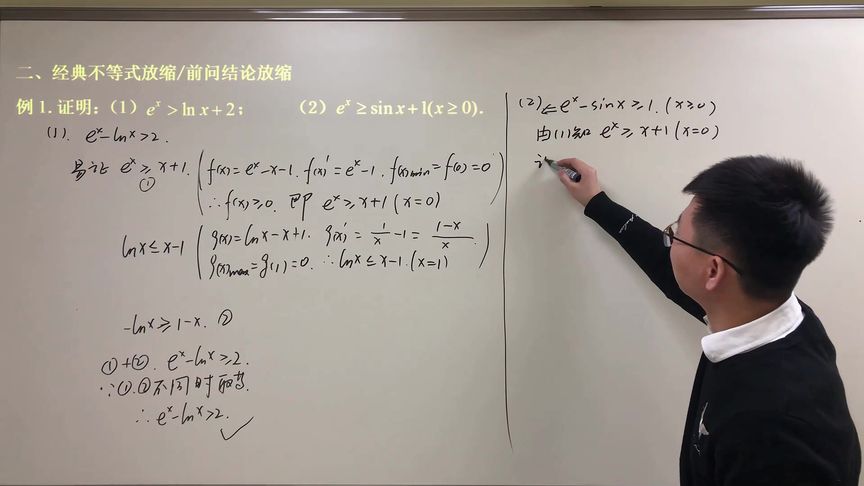 二、经典不等式放缩/前问结论放缩
例 1. 证明:(1) e^x > ln x + 2; (2) e^x ≥ sin x + 1(x ≥ 0).
(1). e^x - ln x > 2.
易证 e^x ≥ x+1. ① (f(x) = e^x - x - 1. f(x)' = e^x - 1. f(x)min = f(0) = 0
∴ f(x) ≥ 0. 即 e^x ≥ x+1 (x=0))
ln x ≤ x-1 (g(x) = ln x - x + 1. g(x)' = 1/x - 1 = (1-x)/x.
g(x)max = g(1) = 0. ∴ ln x ≤ x-1. (x=1))
-ln x ≥ 1-x. ②
①+②. e^x - ln x ≥ 2.
∵ ①.②不同时取等.
∴ e^x - ln x > 2. ✓
(2) ⇐ e^x - sin x ≥ 1. (x ≥ 0)
由(1)知 e^x ≥ x+1 (x=0)